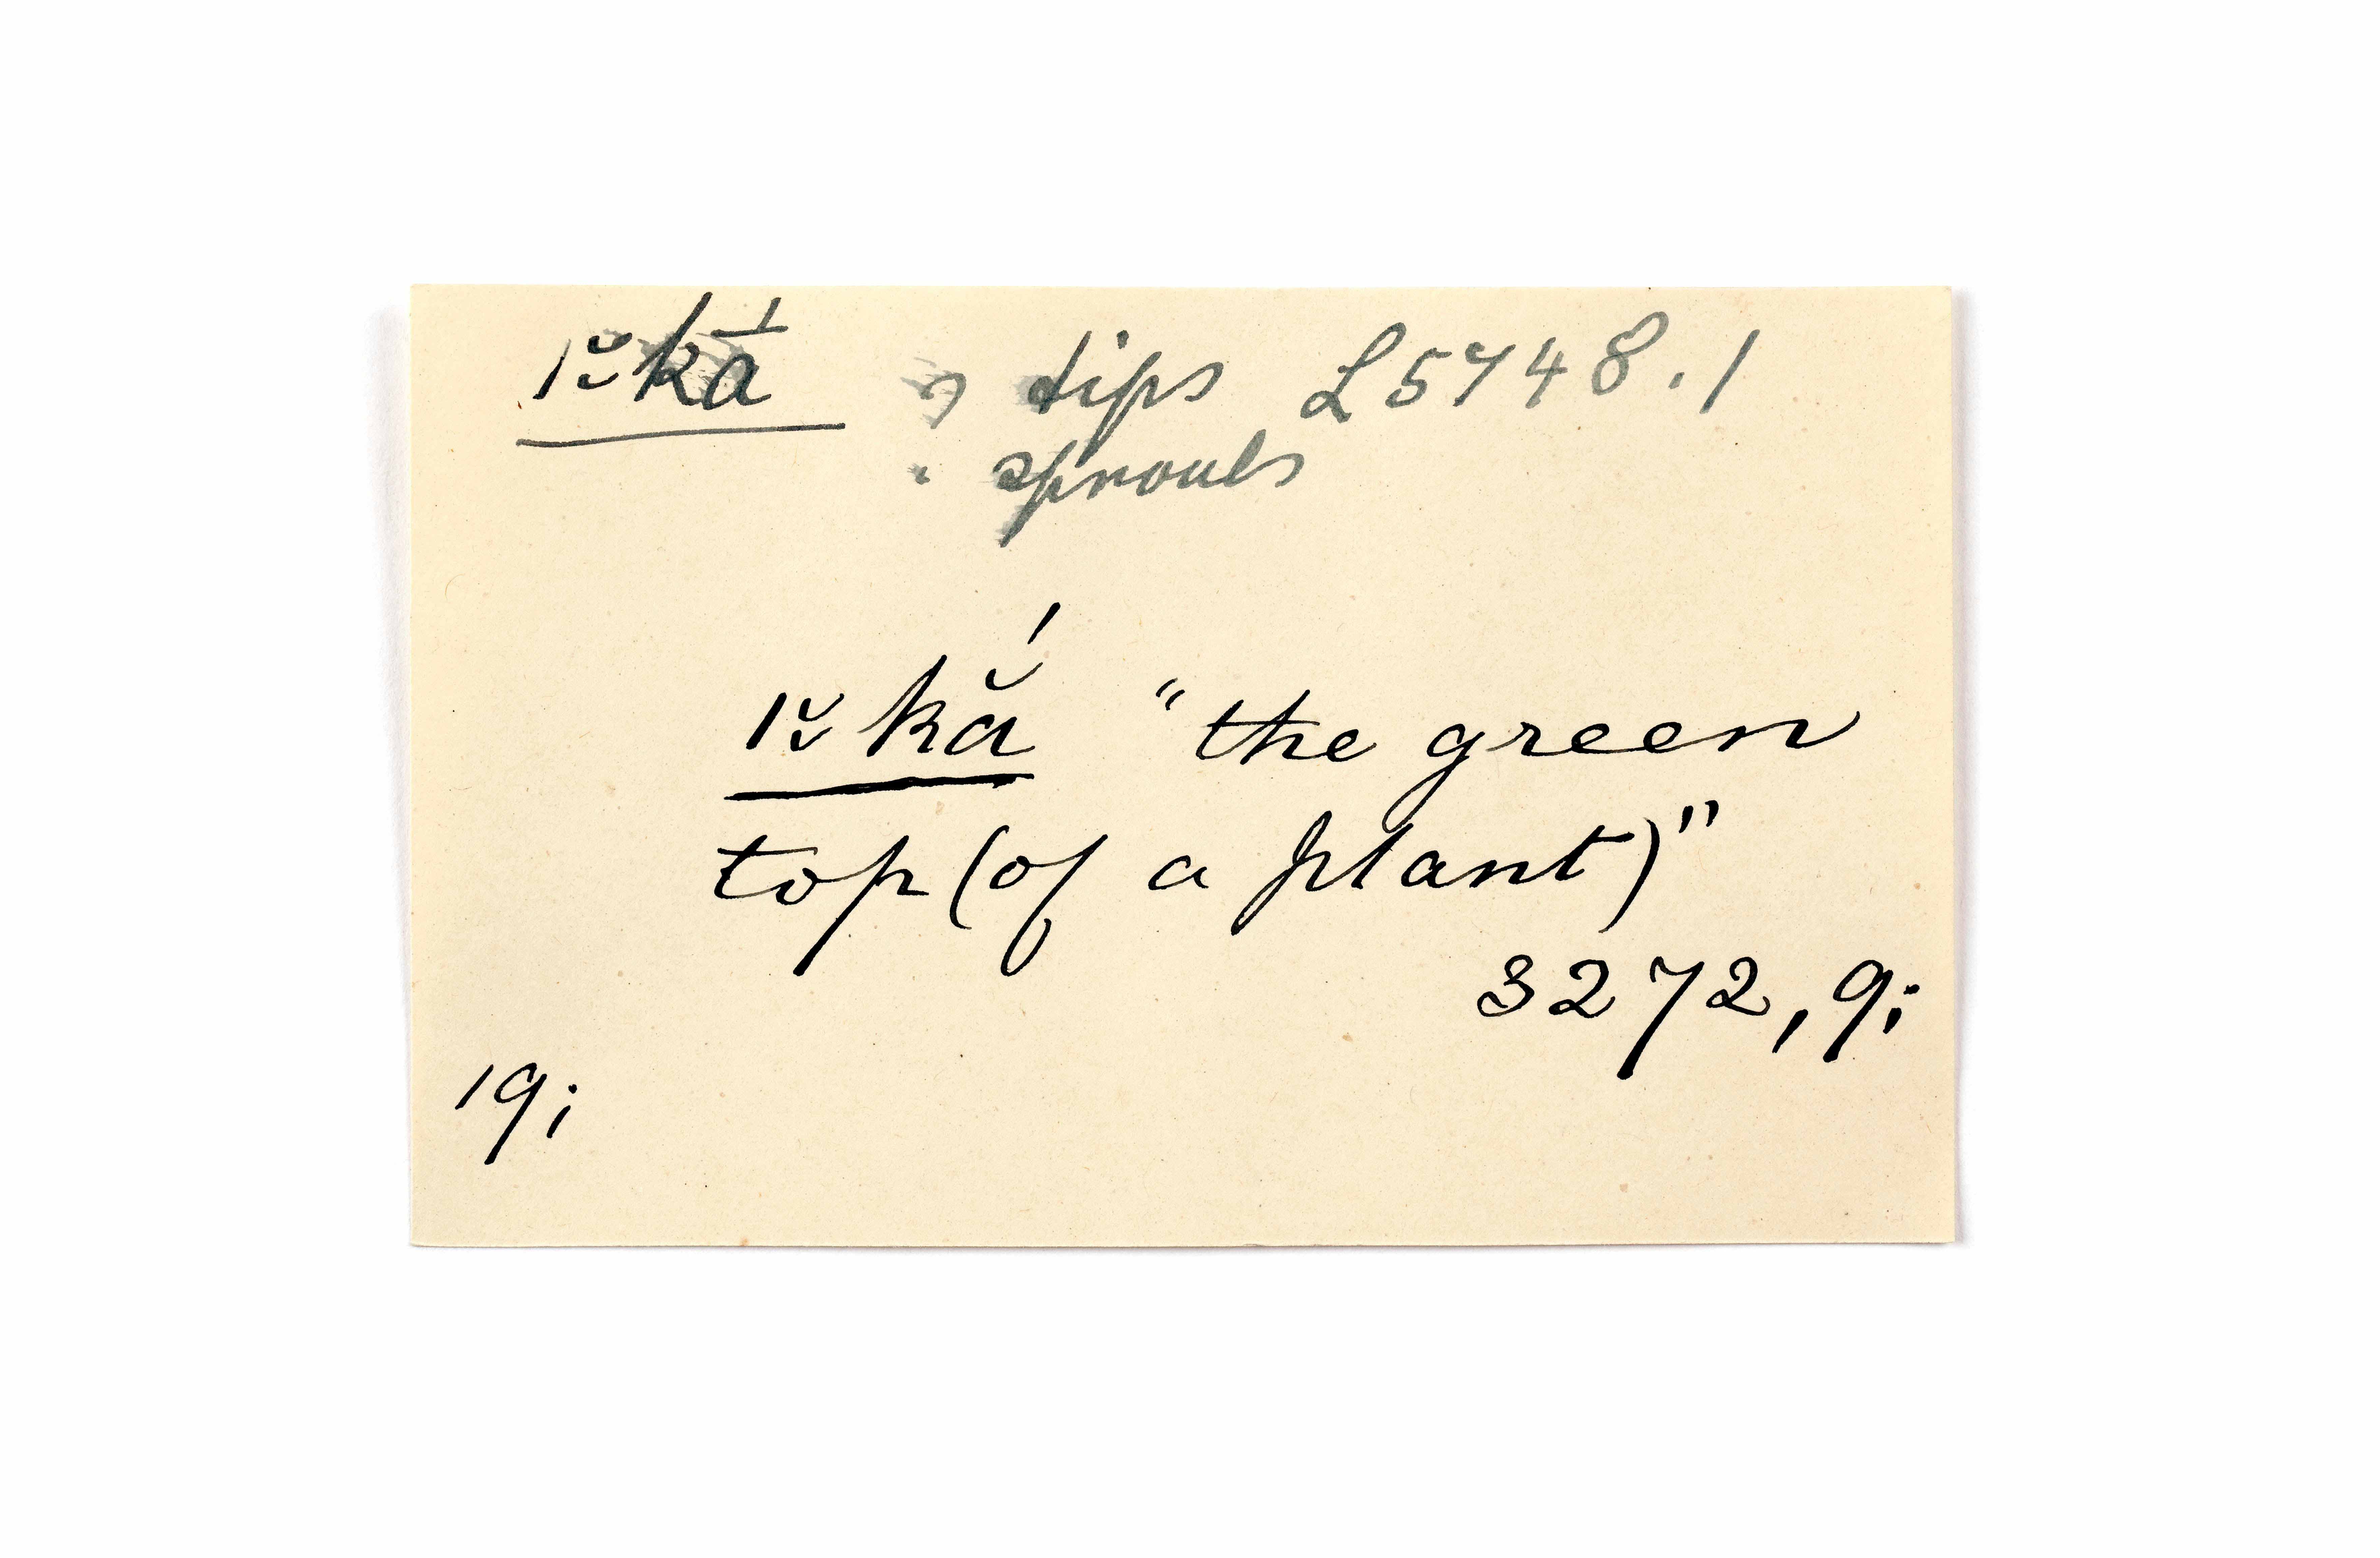 ıṵ̆kā́ , tips L5748.1
sprouts
ıṵ̆kắ "the green
top (of a plant)"
3272, 9;
19;